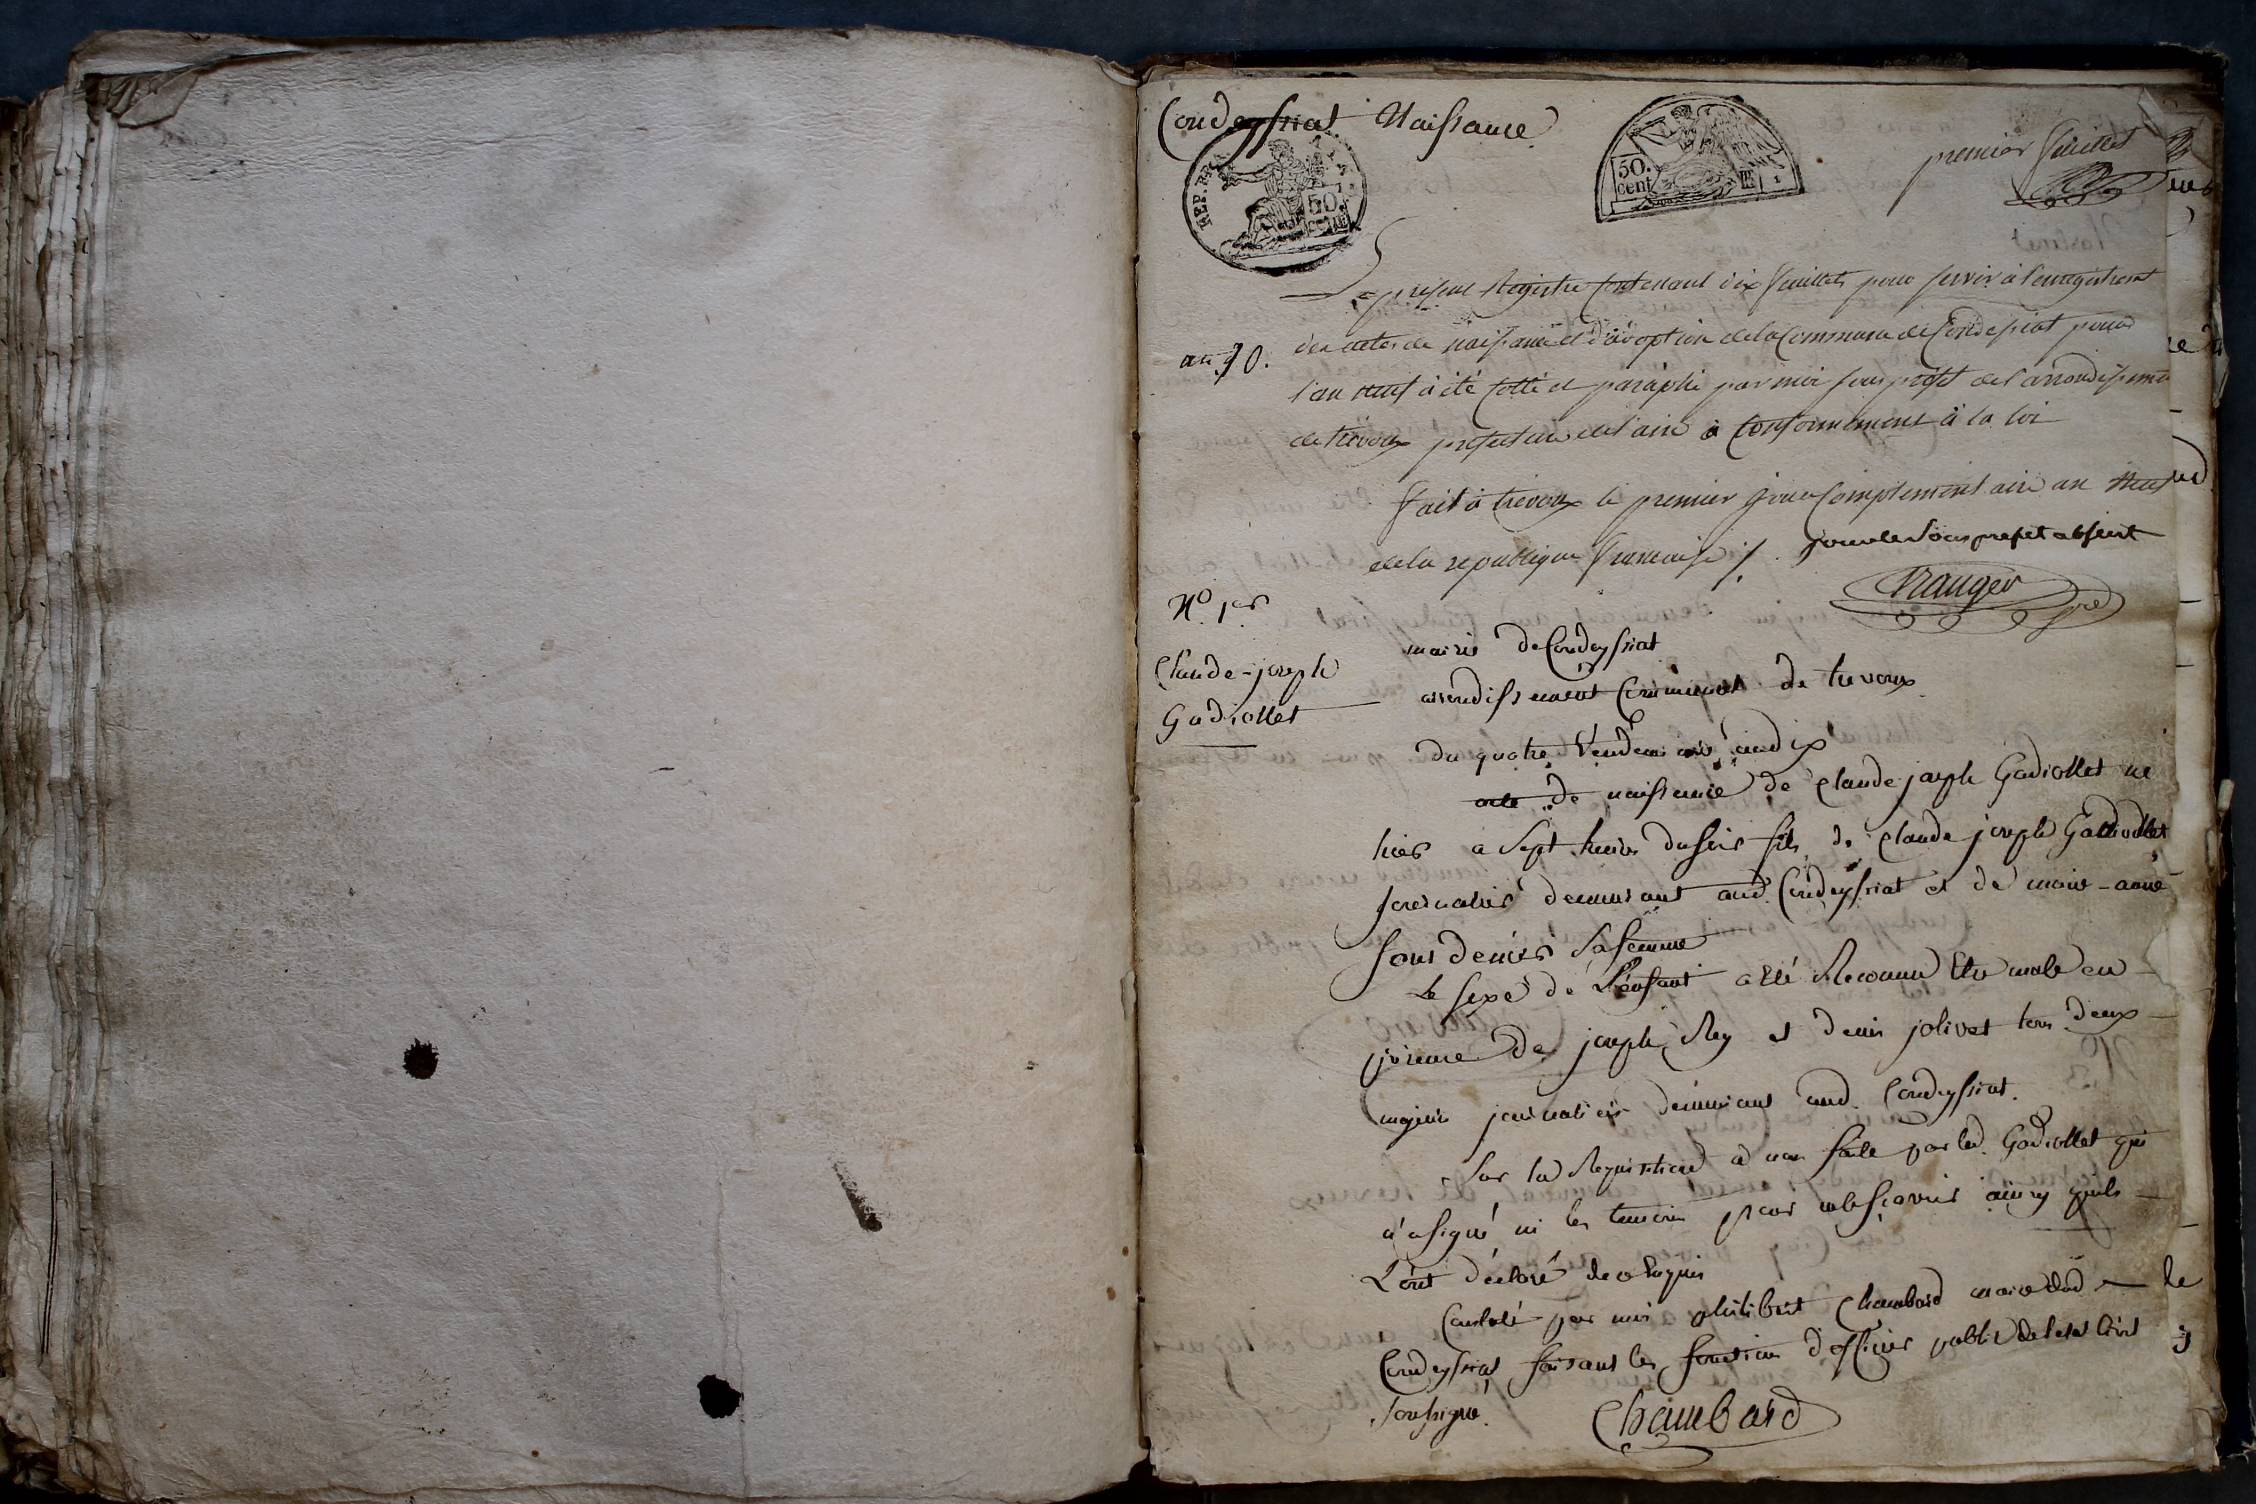 Condeyssiat Naissance
premier feuillet
REP. FRA.
50. cent
50. cent
Le présent Registre Contenant dix feuillets pour servir à l'enregistrement
an 10.
des actes de naissance et d'adoption de la Commune de Condessiat pour
l'an neuf a été Cotté et paraphé par moi sous préfet de l'arrondissement
de trevoux prefecture de l'ain Conformément à la loi
fait à trevoux le premier jour Complémentaire an neuf
de la republique francaise
pour le Sous prefet absent
Nº. 1er
mairie de Condeyssiat
Claude-joseph
Gadiollet
arrondissement Communal de trevoux
du quatre Vendemiaire an dix
acte de naissance de Claude joseph Gadiollet né
hier a Sept heures du soir fils de Claude joseph Gadiollet
journalier demeurant aud. Condeyssiat et de marie-anne
Sa femme
Le sexe de L'enfant a été Reconnu Etre male en
présence de joseph Rey et denis jolivet tous deux
majeurs journaliers demeurant aud. Condeyssiat.
Sur la Requisition a nous faite par led. Gadiollet qui
n'a signé ni les temoins pour ne le sçavoir ainsy quils
L'ont déclaré de ce Enquis
Constaté par moi philibert Chambard maire dud
Condeyssiat faisant les fonctions d'officier public de l'etat Civil
soussigné.
Chambard